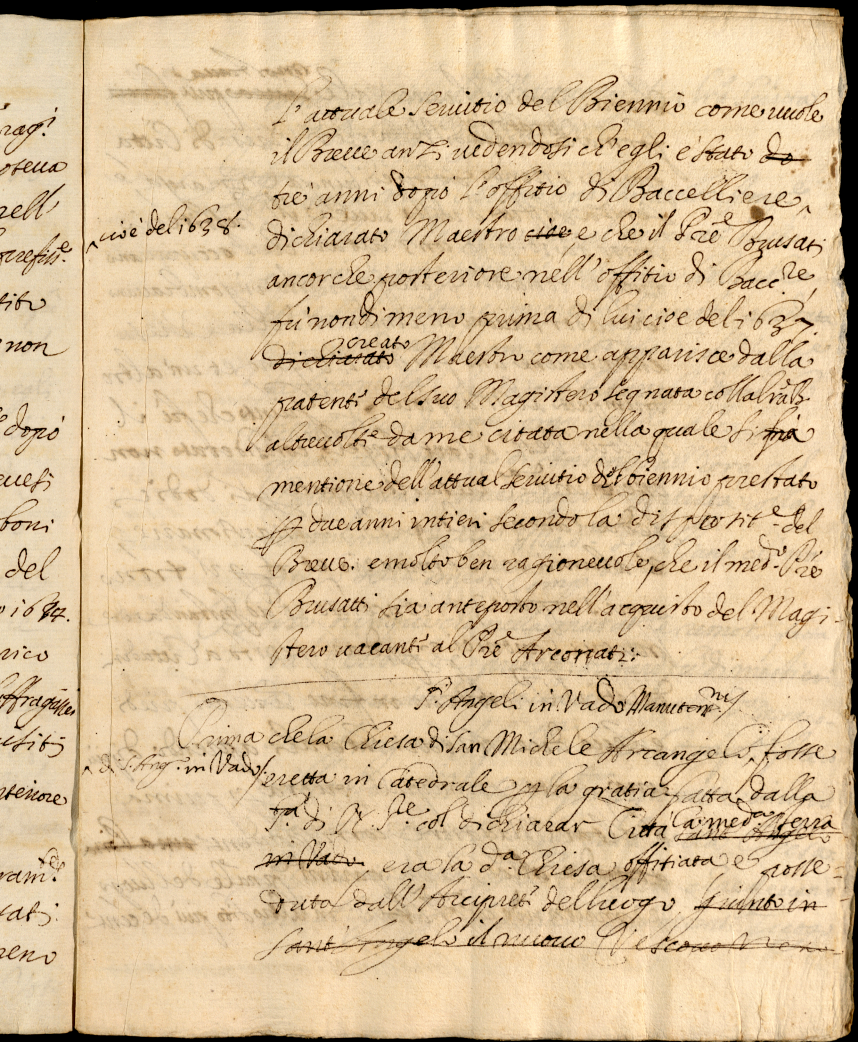 ragi.
oteua
nell'
prefiss.e
tito
non
dopò
euesi
boni
del
rico
usiti
teriore
tati.
reno
l'attuale seruitio del Biennio come uuole
il Breue anzi uedendosi ch'egli è stato do
tre anni dopò l'offitio di Baccelliere
^ cioè del 1638.
dichiarato Maestro cioe, e che il Prè Brusati
ancorche posteriore nell'offitio di Bacc.re
fù nondimeno prima di lui cioè del 1637.
creato
dichiarato Maestro come apparisce dalla
patente del suo Magistero segnata colla lra B
altreuolte da me citata nella quale si fà
mentione dell'attual seruitio del biennio prestato
p due anni intieri secondo la disposit.e del
Breue. e molto ben ragioneuole, che il med.o Prè
Brusatti sia anteposto nell'acquisto del Magi-
stero uacante al Prè Arconati:
S. Angeli in Vado Manuten.nis/
Prima che la Chiesa di San Michele Arcangelo fosse
^ di S. Ang.o in Vado/
eretta in Catedrale p la gratia fatta dalla
S.tà di N. S.re col dichiarar Città la med.a Terra
Sant'Angelo
in Vado era la d.a Chiesa offitiata e posse-
duta dall'Arciprete del luogo giunto in
Sant'Angelo il nuouo Vescouo